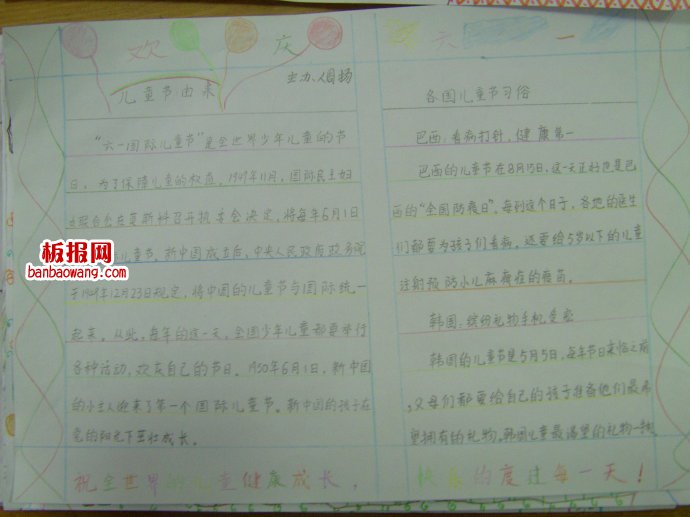 欢 庆 六 一
主办人:
儿童节由来
“六一国际儿童节”是全世界少年儿童的节
日。为了保障儿童的权益,1949年11月,国际民主妇
女联合会在莫斯科召开执委会决定,将每年6月1日
儿童节。新中国成立后,中央人民政府政务院
于1949年12月23日规定,将中国的儿童节与国际统一
起来。从此,每年的这一天,全国少年儿童都要举行
各种活动,欢庆自己的节日。1950年6月1日,新中国
的小主人迎来了第一个国际儿童节。新中国的孩子在
党的阳光下茁壮成长。
天 一
各国儿童节习俗
巴西:看病打针,健康第一
巴西的儿童节在8月15日,这一天正好也是巴
西的“全国防疫日”。每到这个日子,各地的医生
们都要为孩子们看病,还要给5岁以下的儿童
注射预防小儿麻痹症的疫苗。
韩国:缤纷礼物手机受宠
韩国的儿童节是5月5日,每年节日来临之前
,父母们都要给自己的孩子准备他们最希
望拥有的礼物。韩国儿童最渴望的礼物
祝全世界的儿童健康成长,快乐的度过每一天!
板报网
banbaowang.com